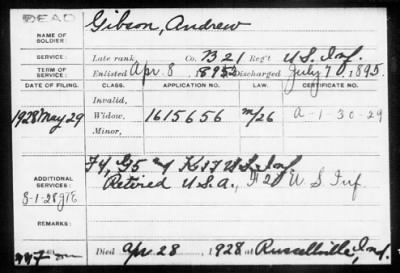 DEAD
NAME OF SOLDIER: Gibson, Andrew
SERVICE: Late rank, Co. B 21 Reg't U.S. Inf.
TERM OF SERVICE: Enlisted Apr. 8, 1895 Discharged July 70, 1895.
DATE OF FILING. CLASS. APPLICATION NO. LAW. CERTIFICATE NO.
Invalid,
1928 May 29 Widow, 1615656 m/26 A-1-30-29
Minor,
ADDITIONAL SERVICES: F 4, G 5 & K 17 U.S. Inf.
Retired U.S.A., H 20 U S Inf.
8-1-28
REMARKS:
Died Apr. 28, 1928 at Russellville, Ind.